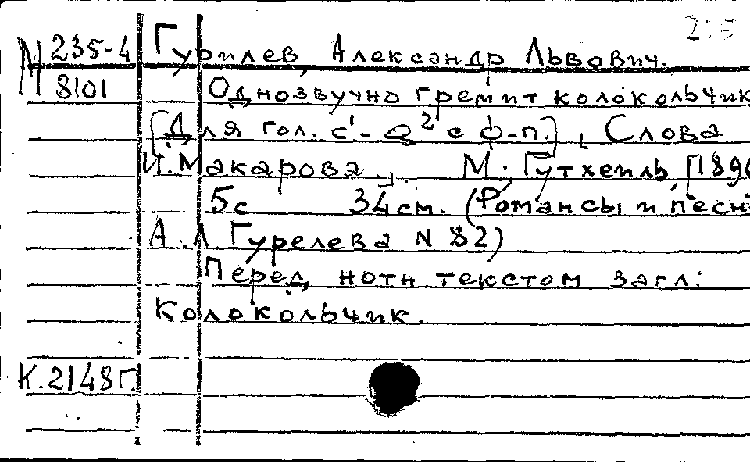 М 235-4 Гурилев, Александр Львович.
8101 Однозвучно гремит колокольчик
[Для гол. c¹-a² с ф-п.], Слова
И. Макарова. М. Гутхейль, [189
5с 34см. (Романсы и песн
А.Л Гурелева N 82)
Перед нотн текстом загл:
Колокольчик.
К.2148Г